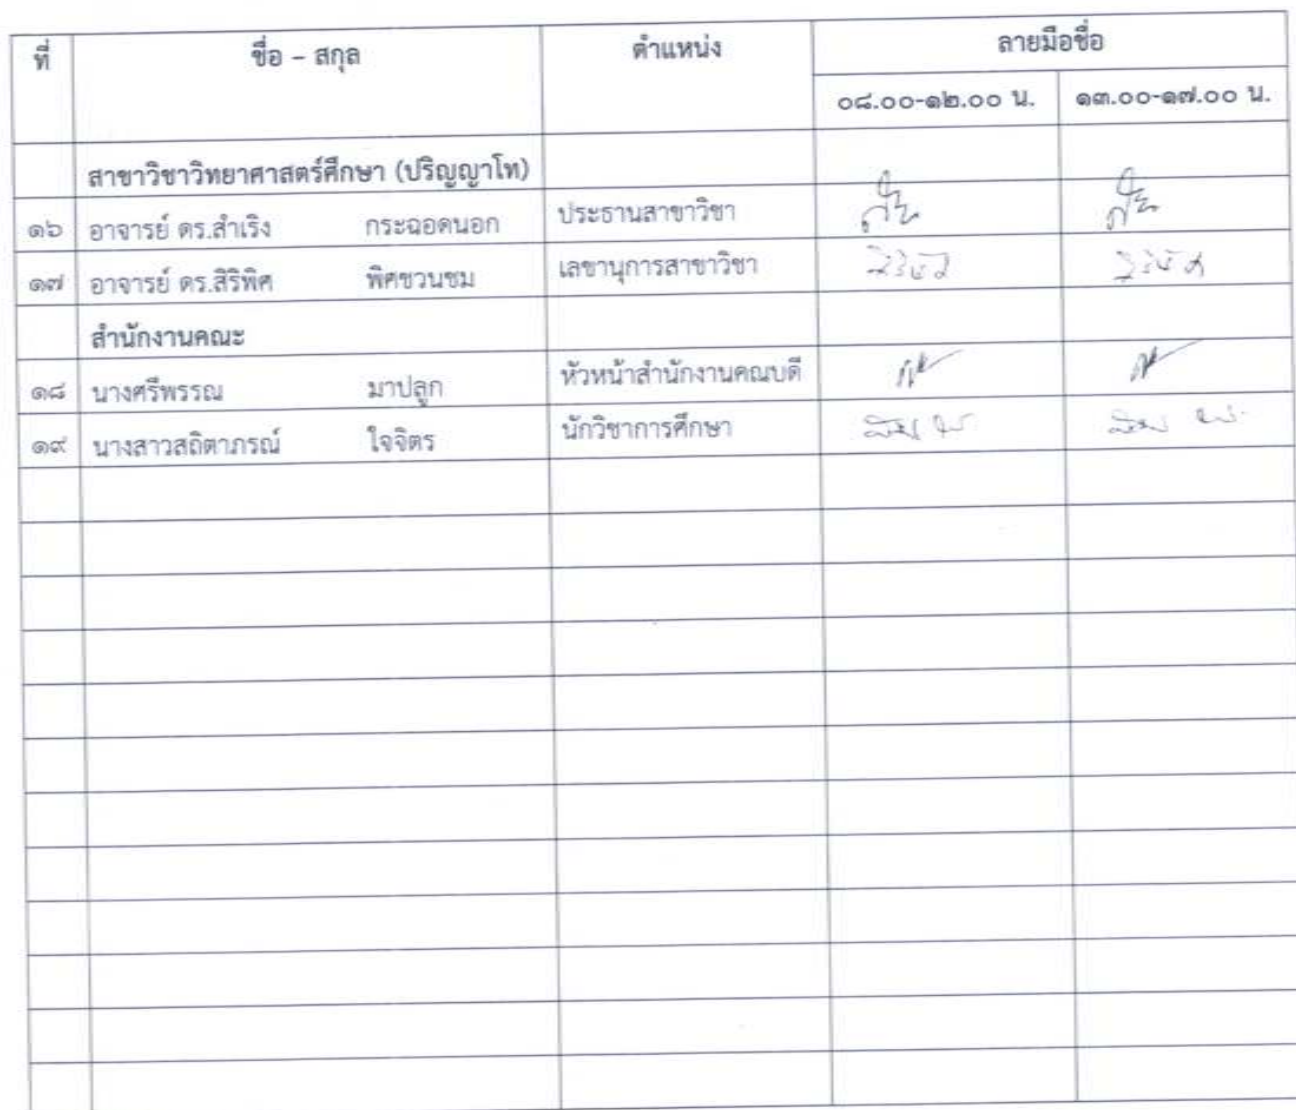 ที่ ชื่อ – สกุล ตำแหน่ง ลายมือชื่อ
๐๘.๐๐-๑๒.๐๐ น. ๑๓.๐๐-๑๗.๐๐ น.
สาขาวิชาวิทยาศาสตร์ศึกษา (ปริญญาโท)
๑๖ อาจารย์ ดร.สำเริง กระฉอดนอก ประธานสาขาวิชา
๑๗ อาจารย์ ดร.สิริพิศ พิศชวนชม เลขานุการสาขาวิชา
สำนักงานคณะ
๑๘ นางศรีพรรณ มาปลูก หัวหน้าสำนักงานคณบดี
๑๙ นางสาวสถิตาภรณ์ ใจจิตร นักวิชาการศึกษา